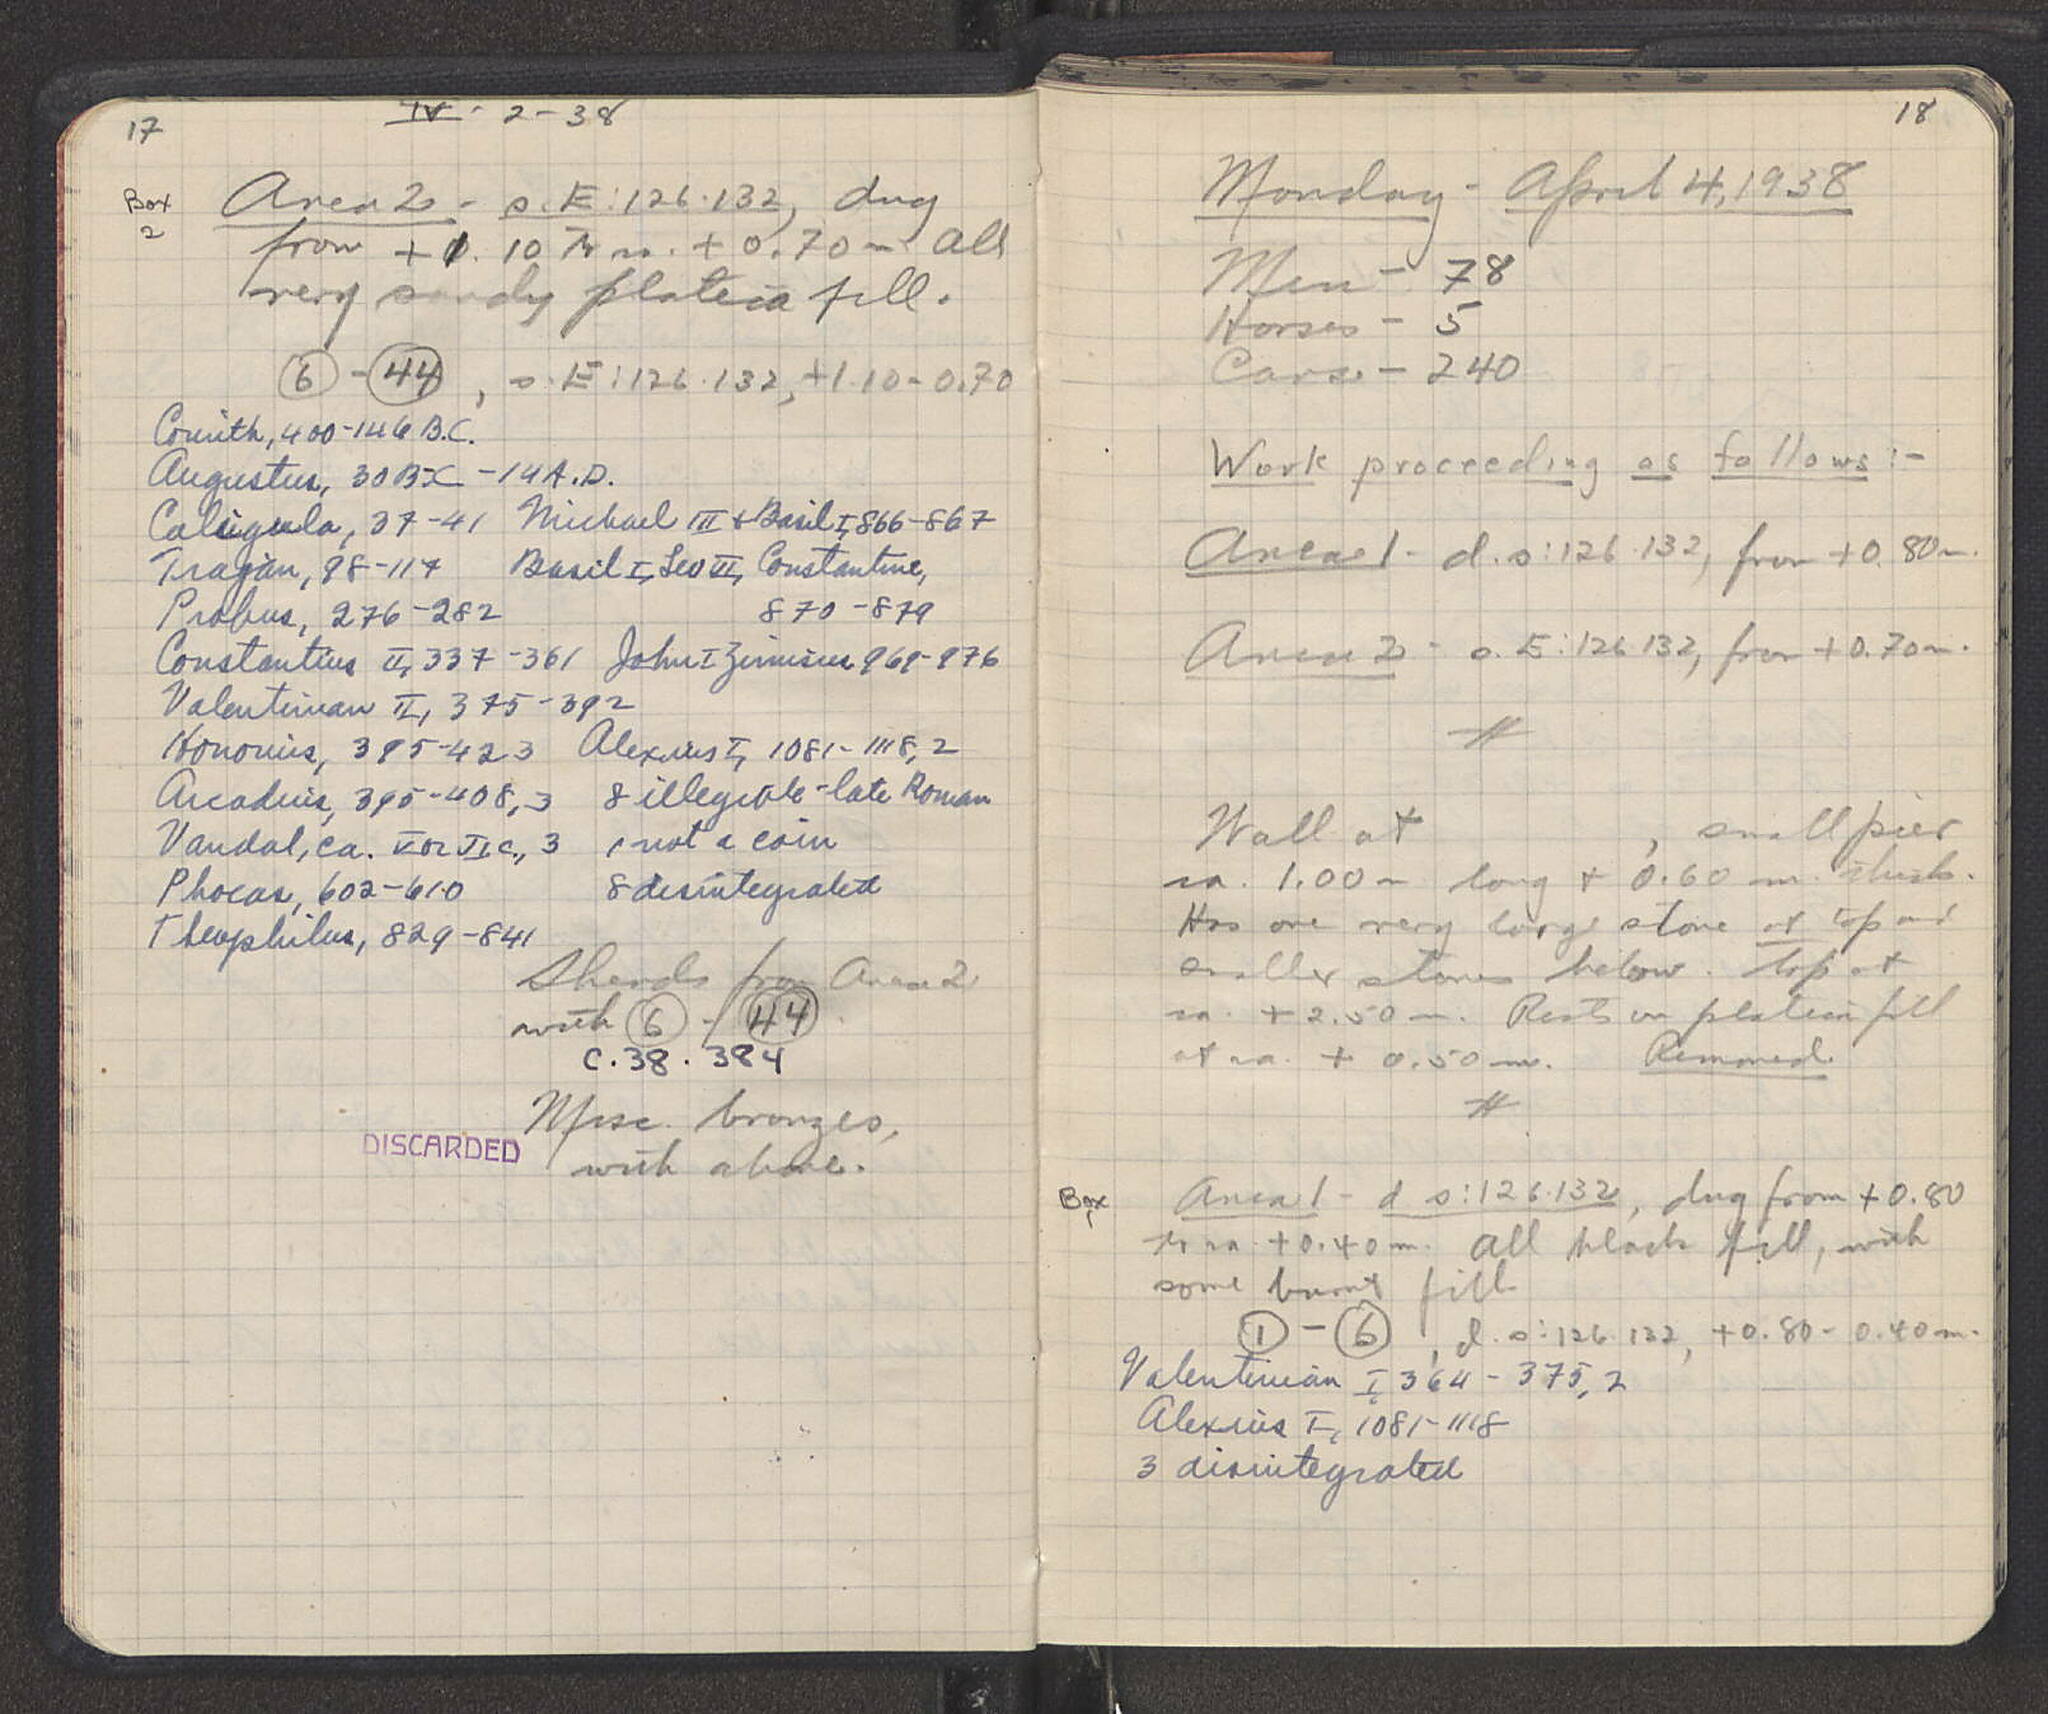 17
IV - 2 - 38
Box
2
Area 2 - s. E:126.132, dug
from +1.10 to ca. +0.70 m. All
very sandy plateia fill.
6 - 44, s. E:126.132, +1.10-0.70
Corinth, 400-146 B.C.
Augustus, 30 B.C. - 14 A.D.
Caligula, 37-41
Trajan, 98-117
Probus, 276-282
Constantius II, 337-361
Valentinian II, 375-392
Honorius, 395-423
Arcadius, 395-408, 3
Vandal, ca. V or VI c., 3
Phocas, 602-610
Theophilus, 829-841
Michael III & Basil I, 866-867
Basil I, Leo VI, Constantine,
870-879
John I Zimisces 969-976
Alexius I, 1081-1118, 2
8 illegible - late Roman
1 not a coin
8 disintegrated
Sherds from Area 2
with 6 - 44.
C.38.384
Misc. bronzes,
with above.
DISCARDED
18
Monday - April 4, 1938
Men - 78
Horses - 5
Cars - 240
Work proceeding as follows:-
Area 1 - d. s:126.132, from +0.80 m.
Area 2 - s. E:126.132, from +0.70 m.
#
Wall at , small pier
ca. 1.00 m long + 0.60 m. thick.
Has one very large stone at top and
smaller stones below. Top at
ca. +2.50 m. Rests on plateia fill
at ca. +0.50 m. Removed.
#
Box
1
Area 1 - d s:126.132, dug from +0.80
to ca. +0.40 m. All black fill, with
some burnt fill
1 - 6, d. s:126.132, +0.80-0.40 m.
Valentinian I, 364-375, 2
Alexius I, 1081-1118
3 disintegrated